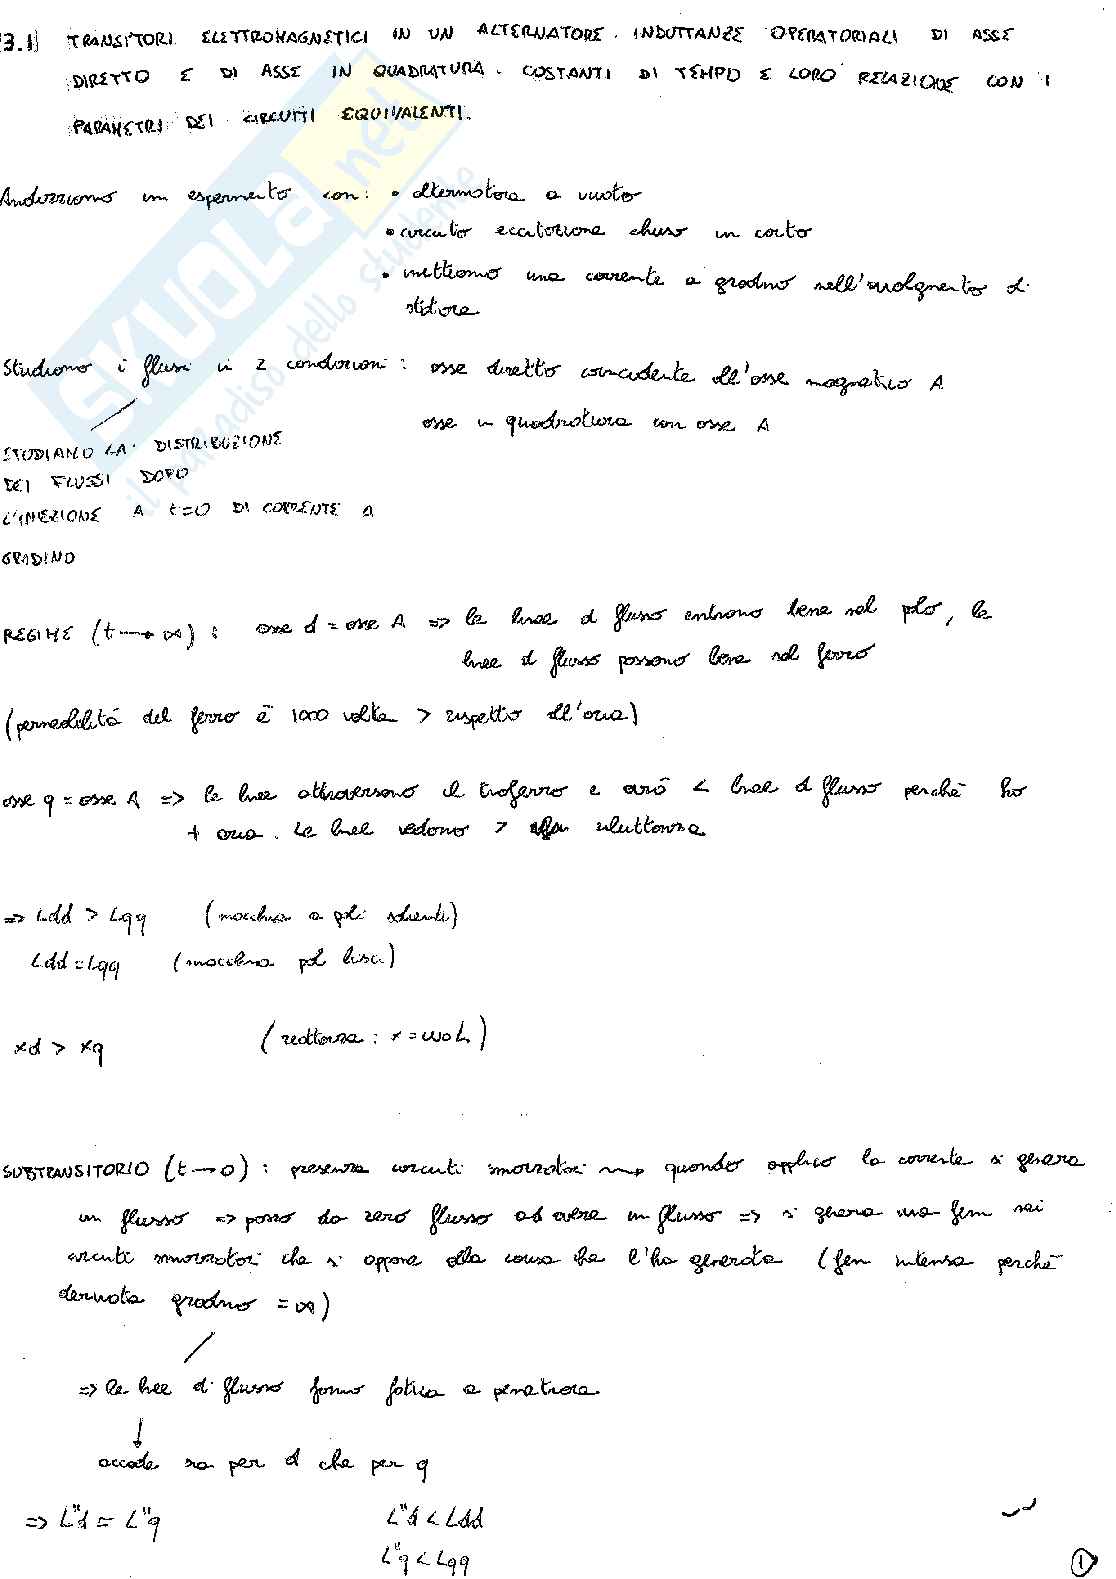 3.1) TRANSITORI ELETTROMAGNETICI IN UN ALTERNATORE. INDUTTANZE OPERATORIALI DI ASSE
DIRETTO E DI ASSE IN QUADRATURA. COSTANTI DI TEMPO E LORO RELAZIONE CON I
PARAMETRI DEI CIRCUITI EQUIVALENTI.
Analizziamo un esperimento con: • alternatore a vuoto
• circuito eccitazione chiuso in corto
• mettiamo una corrente a gradino nell'avvolgimento di
statore
Studiamo i flussi in 2 condizioni: asse diretto coincidente all'asse magnetico A
asse in quadratura con asse A
STUDIAMO LA DISTRIBUZIONE
DEI FLUSSI DOPO
L'INIEZIONE A t=0 DI CORRENTE A
GRADINO
REGIME (t→∞): asse d = asse A => le linee di flusso entrano bene nel polo, le
linee di flusso passano bene nel ferro
(permeabilità del ferro è 1000 volte > rispetto all'aria)
asse q = asse A => le linee attraversano il traferro e avrò < linee di flusso perchè ho
+ aria. Le linee vedono > riluttanza
=> Ldd > Lqq (macchina a poli salienti)
Ldd = Lqq (macchina poli lisci)
xd > xq (reattanza: x = ωo L)
SUBTRANSITORIO (t→0): presenza circuiti smorzatori → quando applico la corrente si genera
un flusso => passo da zero flusso ad avere un flusso => si genera una fem nei
circuiti smorzatori che si oppone alla causa che l'ha generata (fem intensa perchè
derivata gradino = ∞)
=> le linee di flusso fanno fatica a penetrare
↓
accade sia per d che per q
=> L"d = L"q L"d < Ldd
L"q < Lqq
1
SKUOLA.net
il paradiso dello studente